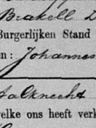 Brakell
Burgerlijken Stand
n: Johannes
alknecht
elke ons heeft verk